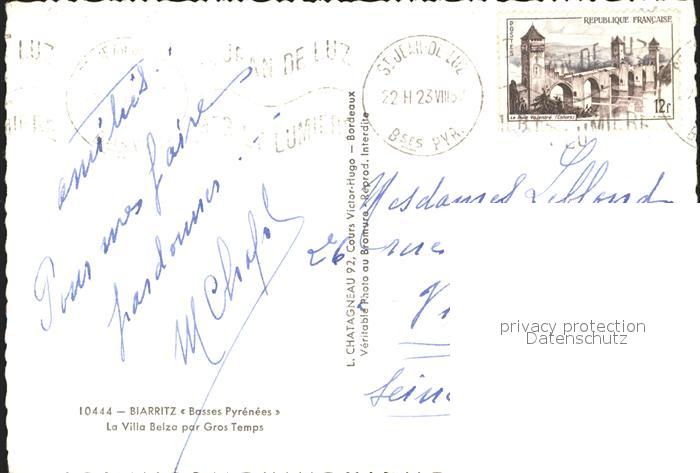 RÉPUBLIQUE FRANÇAISE
POSTES
12f
Le Pont Valentré (Cahors)
ST JEAN-DE LUZ
22 H 23 VIII 57
Bses PYR.
JEAN DE LUZ
LUMIÈRE
amitiés.
Pour me faire
pardonner
Mesdames
26 rue
Sein
L. CHATAGNEAU 92, Cours Victor-Hugo — Bordeaux
Véritable Photo au Bromure - Reprod. Interdite
10444 — BIARRITZ « Basses Pyrénées »
La Villa Belza par Gros Temps
privacy protection
Datenschutz